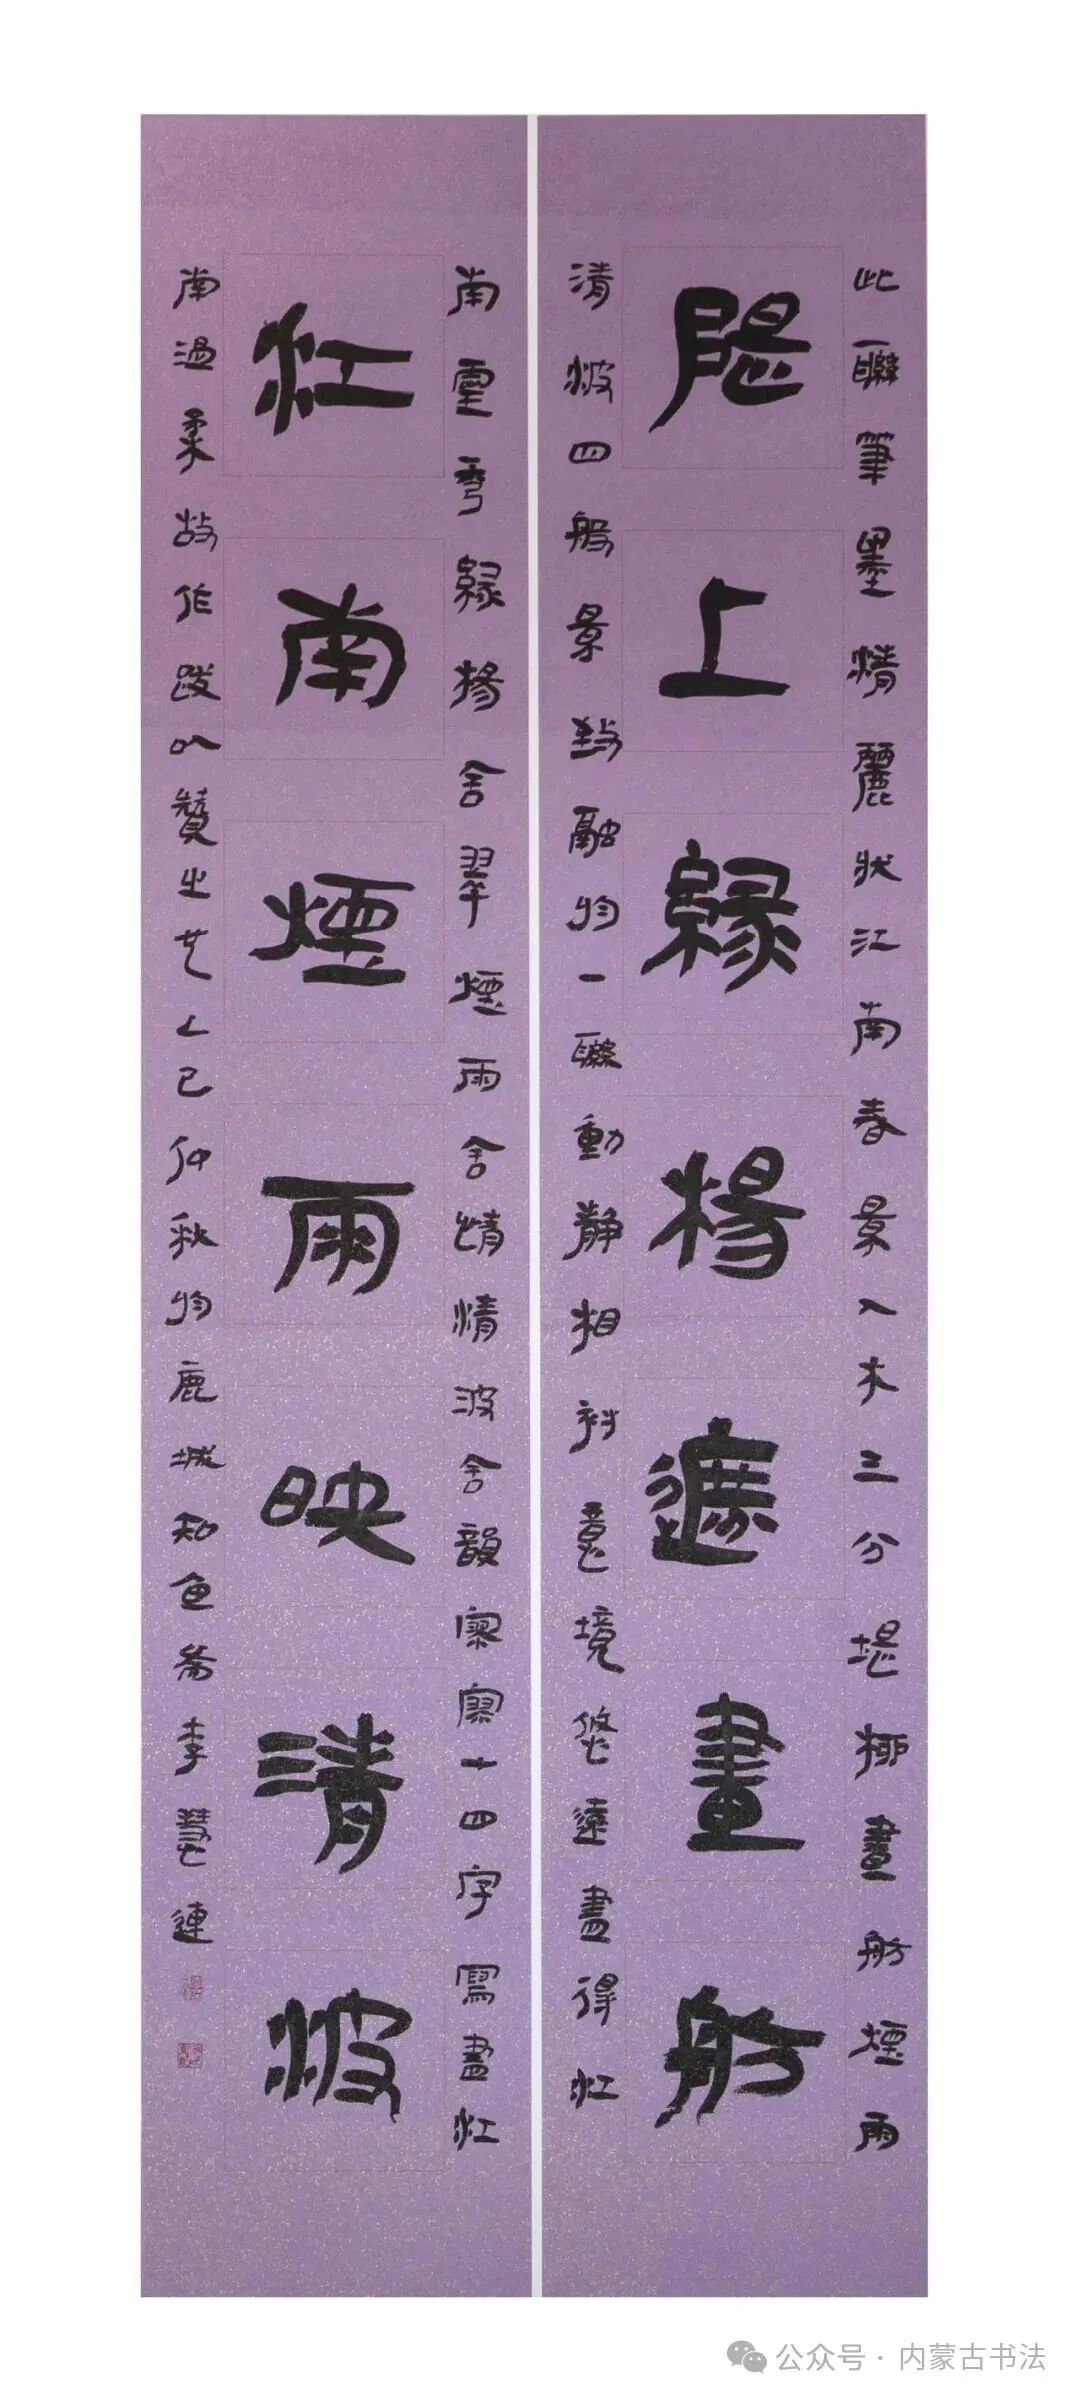 隄上綠楊遮畫舫
江南煙雨映清波
此聯筆墨清麗狀江南春景入木三分堤柳畫舫煙雨
清波四般景致融於一聯動靜相襯意境悠遠盡得江
南靈秀綠楊含翠煙雨含情清波含韻寥寥十四字寫盡江
南溫柔故作跋以贊之乙巳仲秋於鹿城知色齋李慧連
公众号·内蒙古书法